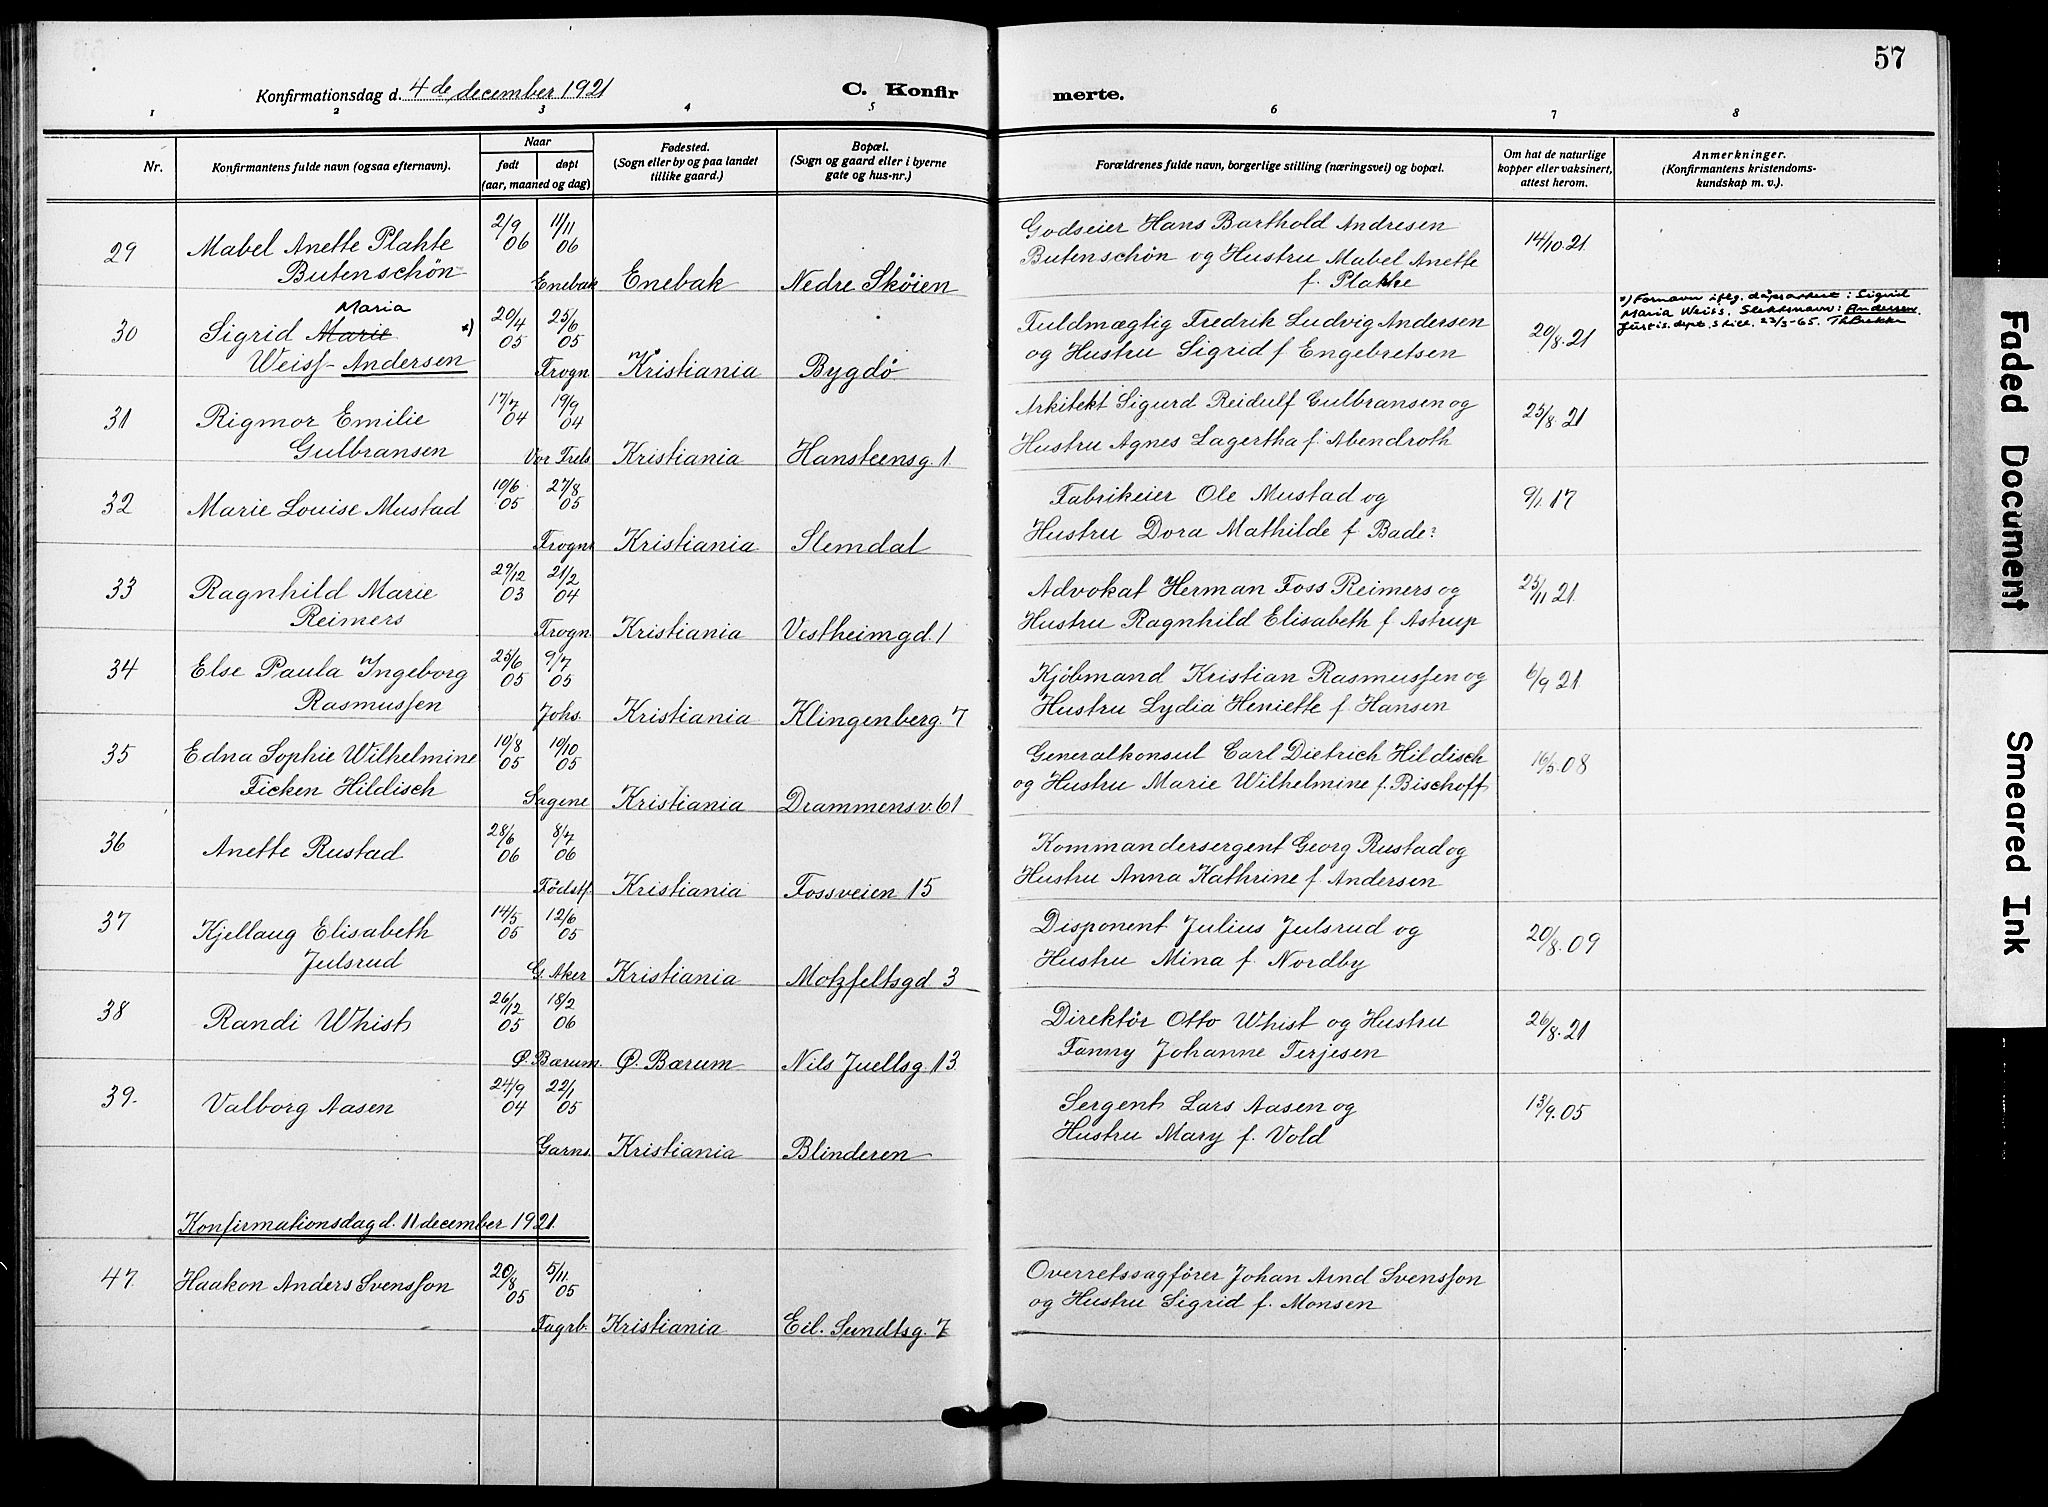 57
Konfirmationsdag d. 4de december 1921
C. Konfirmerte.
1 2 3 4 5 6 7 8
Nr.
Konfirmantens fulde navn (ogsaa efternavn).
Naar
født
døpt
(aar, maaned og dag)
Fødested.
(Sogn eller by og paa landet
tillike gaard.)
Bopæl.
(Sogn og gaard eller i byerne
gate og hus-nr.)
Forældrenes fulde navn, borgerlige stilling (næringsvei) og bopæl.
Om hat de naturlige
kopper eller vaksinert,
attest herom.
Anmerkninger.
(Konfirmantens kristendoms-
kundskap m. v.).
29 Mabel Anette Plahte
Butenschøn
2/9 06 11/11 06
Enebak Enebak Nedre Skøien
Godseier Hans Barthold Andresen
Butenschøn og Hustru Mabel Anette
f. Plahte
14/10.21
30 Sigrid Marie *)
Maria
Weiss- Andersen
20/4 05 25/6 05
Frogn. Kristiania Bygdø
Fuldmægtig Fredrik Ludvig Andersen
og Hustru Sigrid f Engebretsen
20/8.21
*) Fornavn iflg. dåpsattest: Sigrid
Maria Weiss. Slektsnavn: Andersen.
Justis.dept. skill. 22/3-65. ThBrekke
31 Rigmor Emilie
Gulbransen
17/7 04 19/9 04
Vor Frels Kristiania Hansteensg. 1
Arkitekt Sigurd Reidulf Gulbransen og
Hustru Agnes Lagertha f. Abendroth
25/8.21
32 Marie Louise Mustad
10/6 05 27/8 05
Frogn. Kristiania Slemdal
Fabrikeier Ole Mustad og
Hustru Dora Mathilde f Bade?
9/1.17
33 Ragnhild Marie
Reimers
29/12 03 21/2 04
Frogn. Kristiania Vestheimgd. 1
Advokat Herman Foss Reimers og
Hustru Ragnhild Elisabeth f Astrup
25/11 21
34 Else Paula Ingeborg
Rasmussen
25/6 05 9/7 05
Johs. Kristiania Klingenberg. 7
Kjøbmand Kristian Rasmussen og
Hustru Lydia Heniette f Hansen
6/9 21
35 Edna Sophie Wilhelmine
Ficken Hildisch
10/8 05 19/10 05
Sagene Kristiania Drammensv. 61
Generalkonsul Carl Dietrich Hildisch
og Hustru Marie Wilhelmine f. Bischoff
16/5.08
36 Anette Rustad
28/6 06 8/7 06
Fødstf. Kristiania Fossveien 15
Kommandersergent Georg Rustad og
Hustru Anna Kathrine f. Andersen
37 Kjellaug Elisabeth
Julsrud
14/5 05 12/6 05
G. Aker Kristiania Motzfeltsgd 3
Disponent Julius Julsrud og
Hustru Mina f. Nordby
20/8.09
38 Randi Whist
26/12 05 18/2 06
Ø. Bærum. Ø. Bærum Nils Juellsg. 13
Direktør Otto Whist og Hustru
Fanny Johanne Terjesen
26/8.21
39. Valborg Aasen
24/9 04 22/1 05
Garns. Kristiania Blinderen
Sergent Lars Aasen og
Hustru Mary f. Vold
13/9.05
Konfirmationsdag d. 11 december 1921.
47 Haakon Anders Svensson
20/8 05 5/11 05
Fagrb. Kristiania Eil. Sundtsg. 7
Overretssagfører Johan Arnd Svensson
og Hustru Sigrid f. Monsen
Faded Document
Smeared Ink